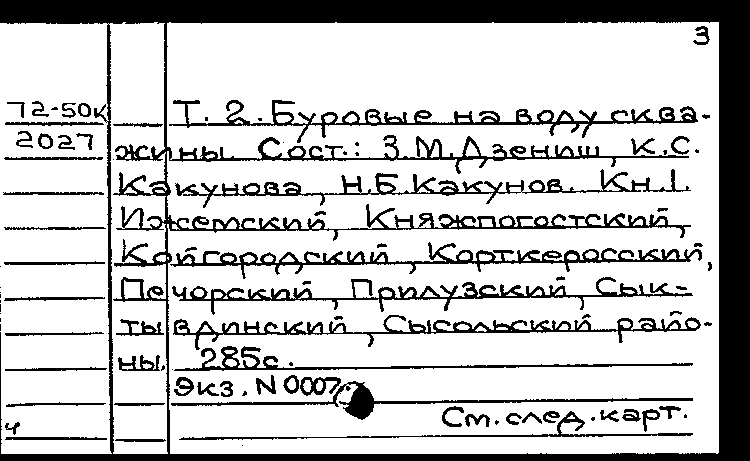 3
72-50к
2027
Т. 2. Буровые на воду сква-
жины. Сост.: З.М.Дзениш, К.С.
Какунова, Н.Б.Какунов. Кн.1.
Ижемский, Княжпогостский,
Койгородский, Корткеросский,
Печорский, Прилузский, Сык-
тывдинский, Сысольский райо-
ны. 285с.
Экз. N 0007
См. след. карт.
ч